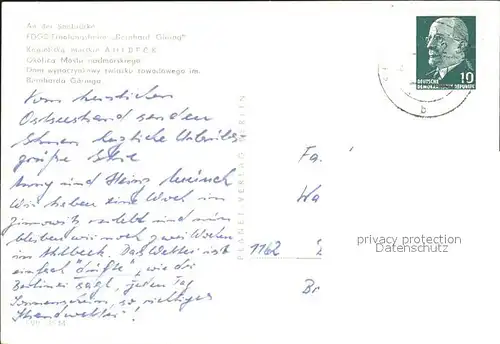 An der Seebrücke
FDGB-Erholungsheim „Bernhard Göring"
курорта А Л Ь Б Е К
Okolica Mostu nadmorskiego
Dom wypoczynkowy związku zawodowego im.
Bernharda Göringa
Vom herrlichen
Ostseestrand senden
Ihnen herzliche Urlaubs-
grüße Ihre
Anny und Heinz
Wir haben eine Woche in
Zinnowitz verlebt und nun
bleiben wir noch zwei Wochen
in Ahlbeck. Das Wetter ist
einfach „dufte", wie der
Berliner sagt, jeden Tag
Sonnenschein, so richtiges
Strandwetter!
PLANET-VERLAG BERLIN
DEUTSCHE
DEMOKRATISCHE REPUBLIK
10
b
Fa.
Wa
1162
Br
privacy protection
Datenschutz